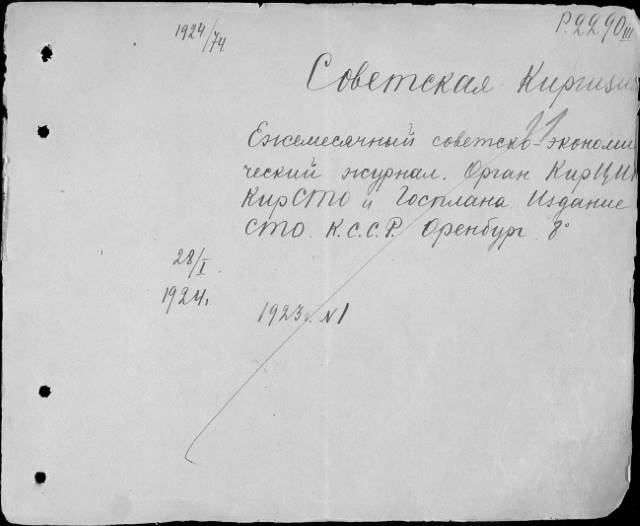 1924/74
Р.2290 III
Советская Киргизия
Ежемесячный советско-экономи
ческий журнал. Орган КирЦИ
КирСТО и Госплана Издание
СТО К.С.С.Р. Оренбург 8°
28/I
1924г.
1923г. №1